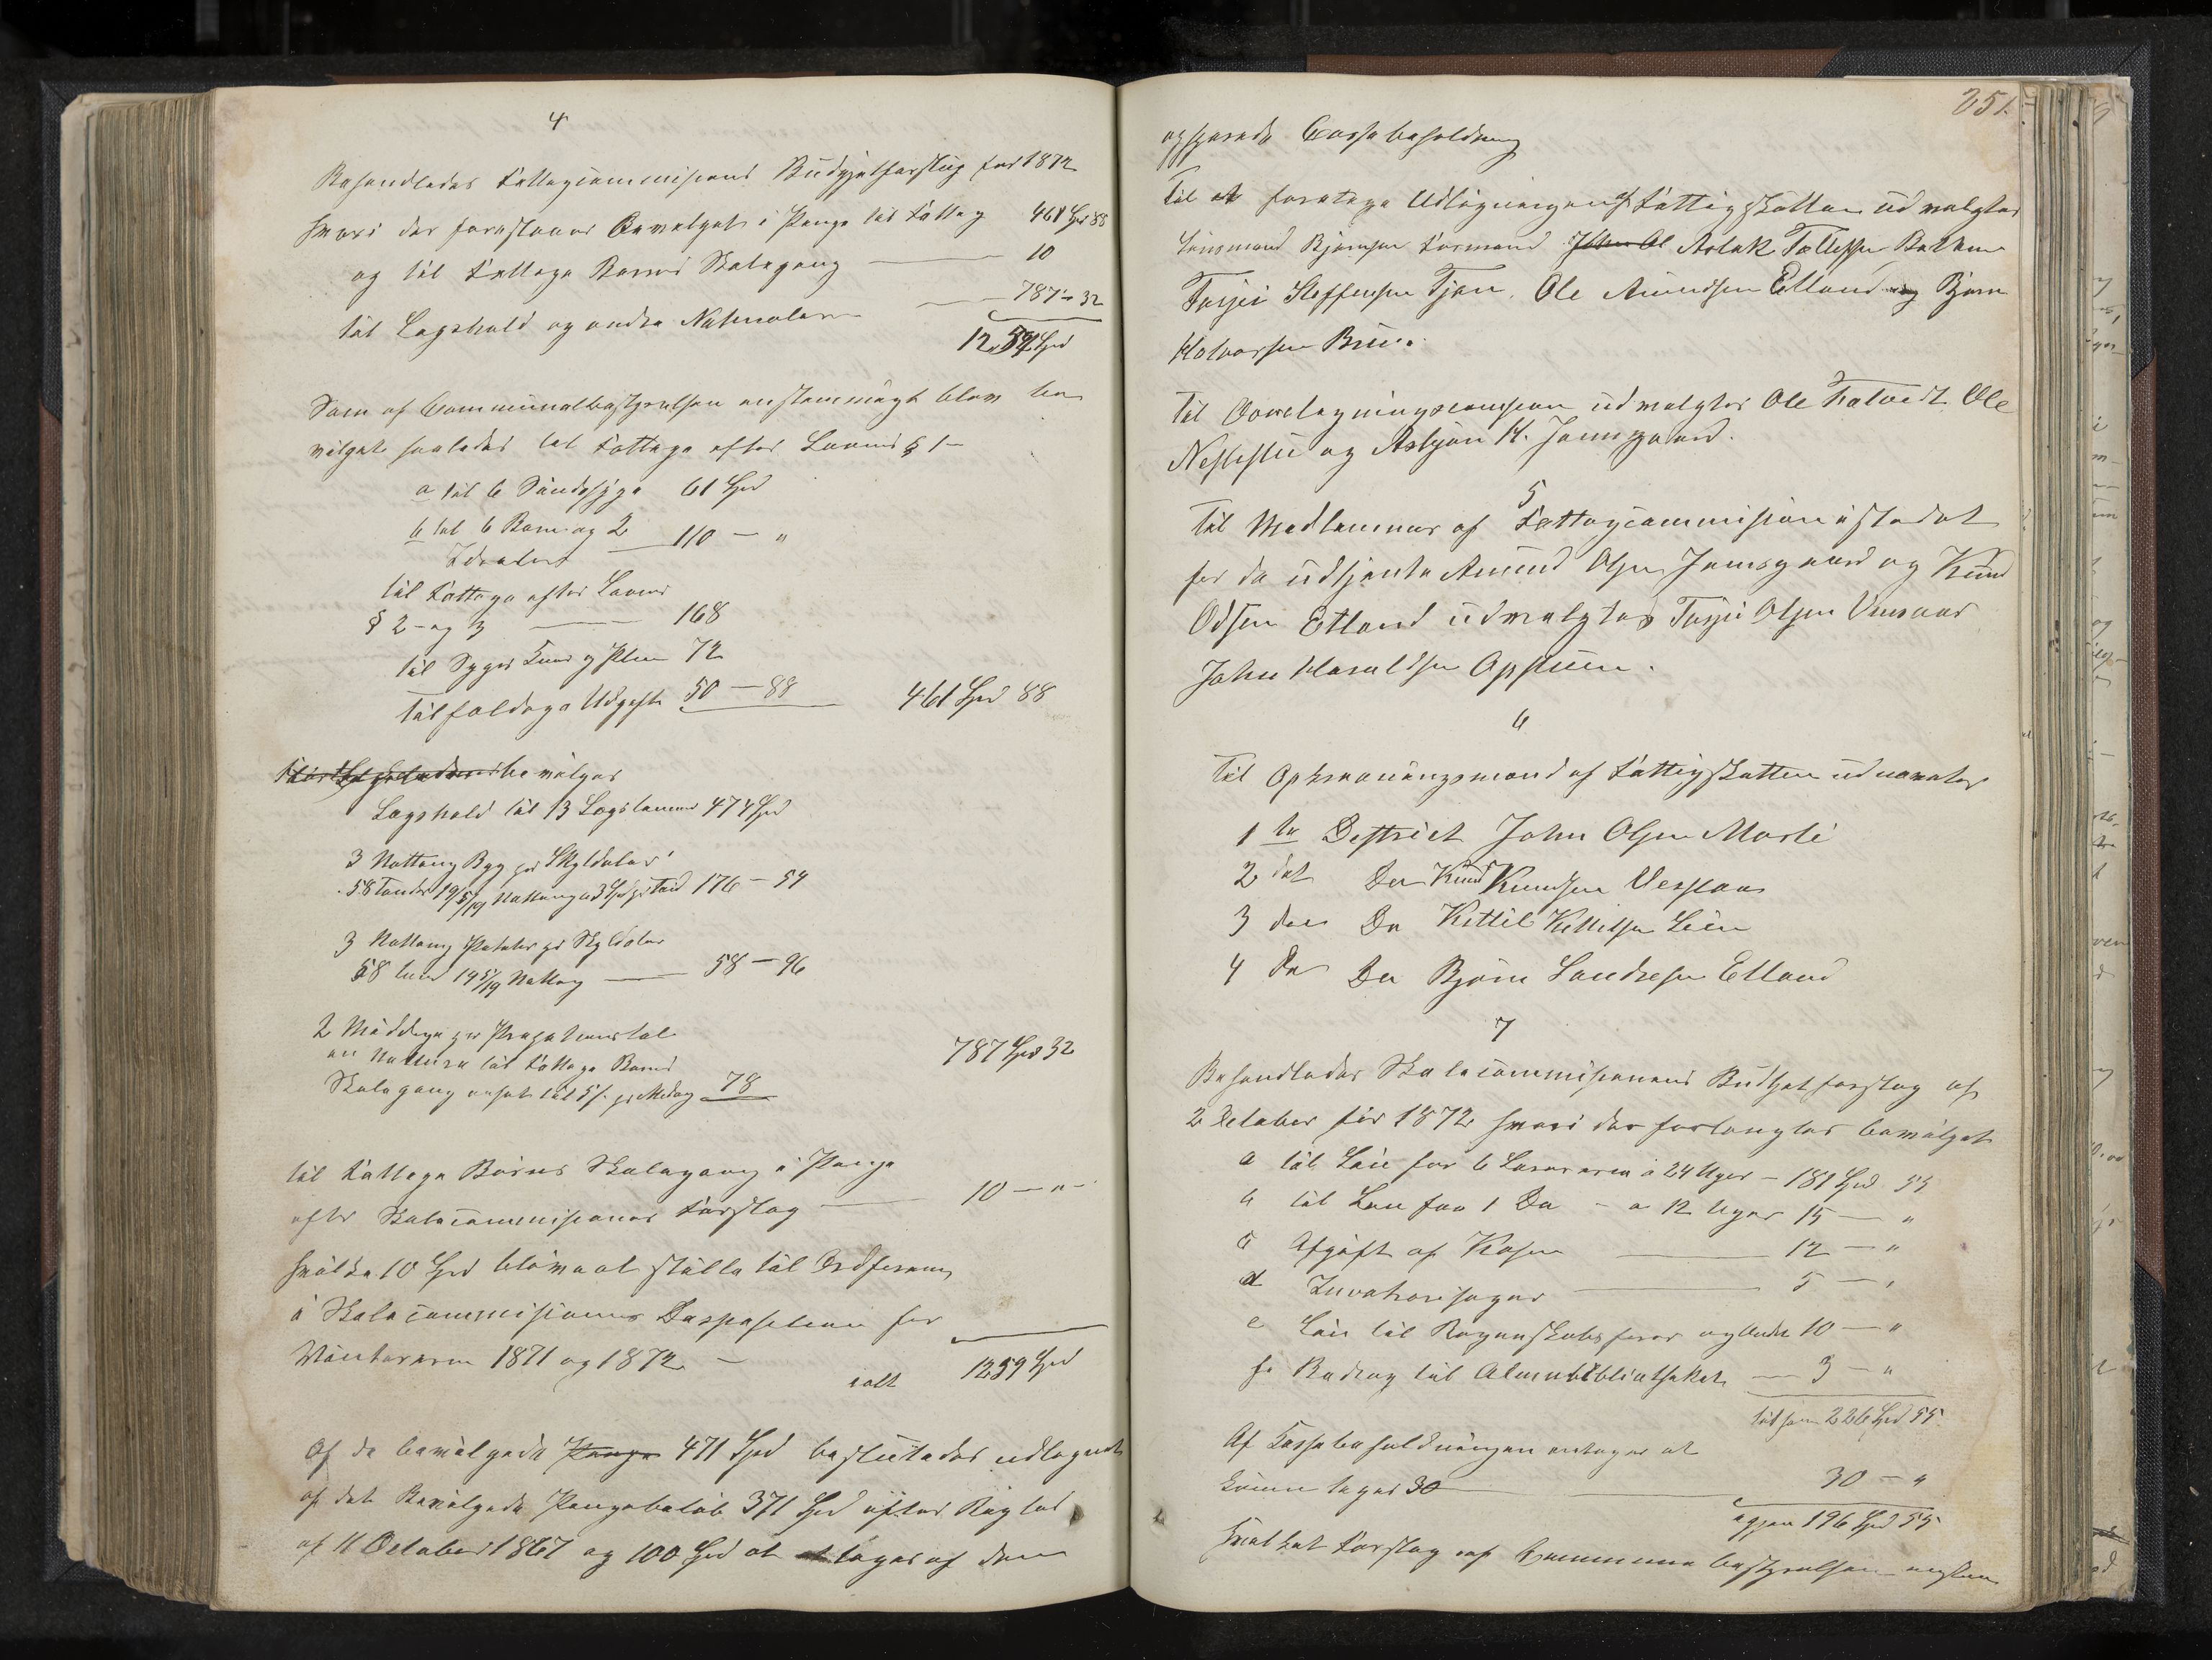 4
Behandledes Fattigcommisions Budgjetforslag for 1872
hvori der foreslaaes Bevilget i Penge til Fattig 461 Spd 88
og til Fattige Børns Skolegang — 10
til Lægshold og andre Naturalier — 787 - 32
1259 Spd
Som af Communalbestyrelsen enstemmigt blev be
vilget saaledes til Fattige efter Lovens § 1 -
a til 6 Sindssyge 61 Spd
b til 6 Børn og 2
Idioter — 110 - "
til Fattige efter Lovens
§ 2 - og 3 — 168
til Syges Kuur og Pleie 72
Tilfældige Udgifter 50 - 88 461 Spd 88
bevilges
Lægshold til 13 Lægslemmer 474 Spd
3 Notting Byg pr Skyldaler
58 Tønder 19 5/19 Notting a 3 Spd pr Tønd 176 - 54
3 Notting Poteter pr Skyldaler
58 Tønder 19 5/19 Notting — 58 - 96
2 Middage pr Proportionstal
in Natura til Fattige Børns
Skolegang ansat til 5 s. pr Middag 78
787 Spd 32
til Fattige Børns Skolegang i Penge
efter Skolecommisionens Forslag — 10 - " -
hvilke 10 Spd bliver at stille til Ordføreren
i Skolecommisionens Disposition for
Vinteren 1871 og 1872 -
ialt 1259 Spd
Af de bevilgede 471 Spd besluttedes udlignet
af det Bevilgede Pengebeløb 371 Spd efter Regler
af 11 October 1867 og 100 Spd at tages af den
251.
opsparede Cassebeholdning
Til at foretage Udligningen af Fattigskatten udvalgtes
Lensmand Bjørnsen Formand Aslak Tollefsen Bakken
Torjei Steffensen Tjøn, Ole Amundsen Etland og Bjørn
Halvorsen Bue.
Til Overligningscomision udvalgtes Ole Fatvedt Ole
Neslestu og Asbjøn H. Jamsgaard.
5
Til Medlemmer af Fattigcommisionen istedet
for de udtjente Amund Olsen Jamsgaard og Knud
Odsen Etland udvalgtes Torjei Olsen
John Haraldsen Opstuen.
6
Til Opkrævningsmænd af Fattigskatten udnævntes
1te Destrict John Olsen Marli
2det Do Knud Knudsen Veslaas
3die Do Kittil Kittilsen Lien
4de Do Bjørn Sondresen Etland
7
Behandledes Skolecommisionens Budgetforslag af
2 October for 1872 hvori der forlangtes bevilget
a til Løn for 6 Lærerere a 24 Uger - 181 Spd 55
b til Løn for 1 Do - a 12 Uger 15 - "
c Afgift af Kassen — 12 - "
d Inventariesager — 5 - "
e Løn til Regnskabsfører og Andet 10 - "
f Bidrag til Almuebibliotheket — 3 - "
tilsam 226 Spd 55
Af Kassebeholdningen antages at
kunne tages 30 — 30 - "
igjen 196 Spd 55
hvilket Forslag af Communebestyrelsen